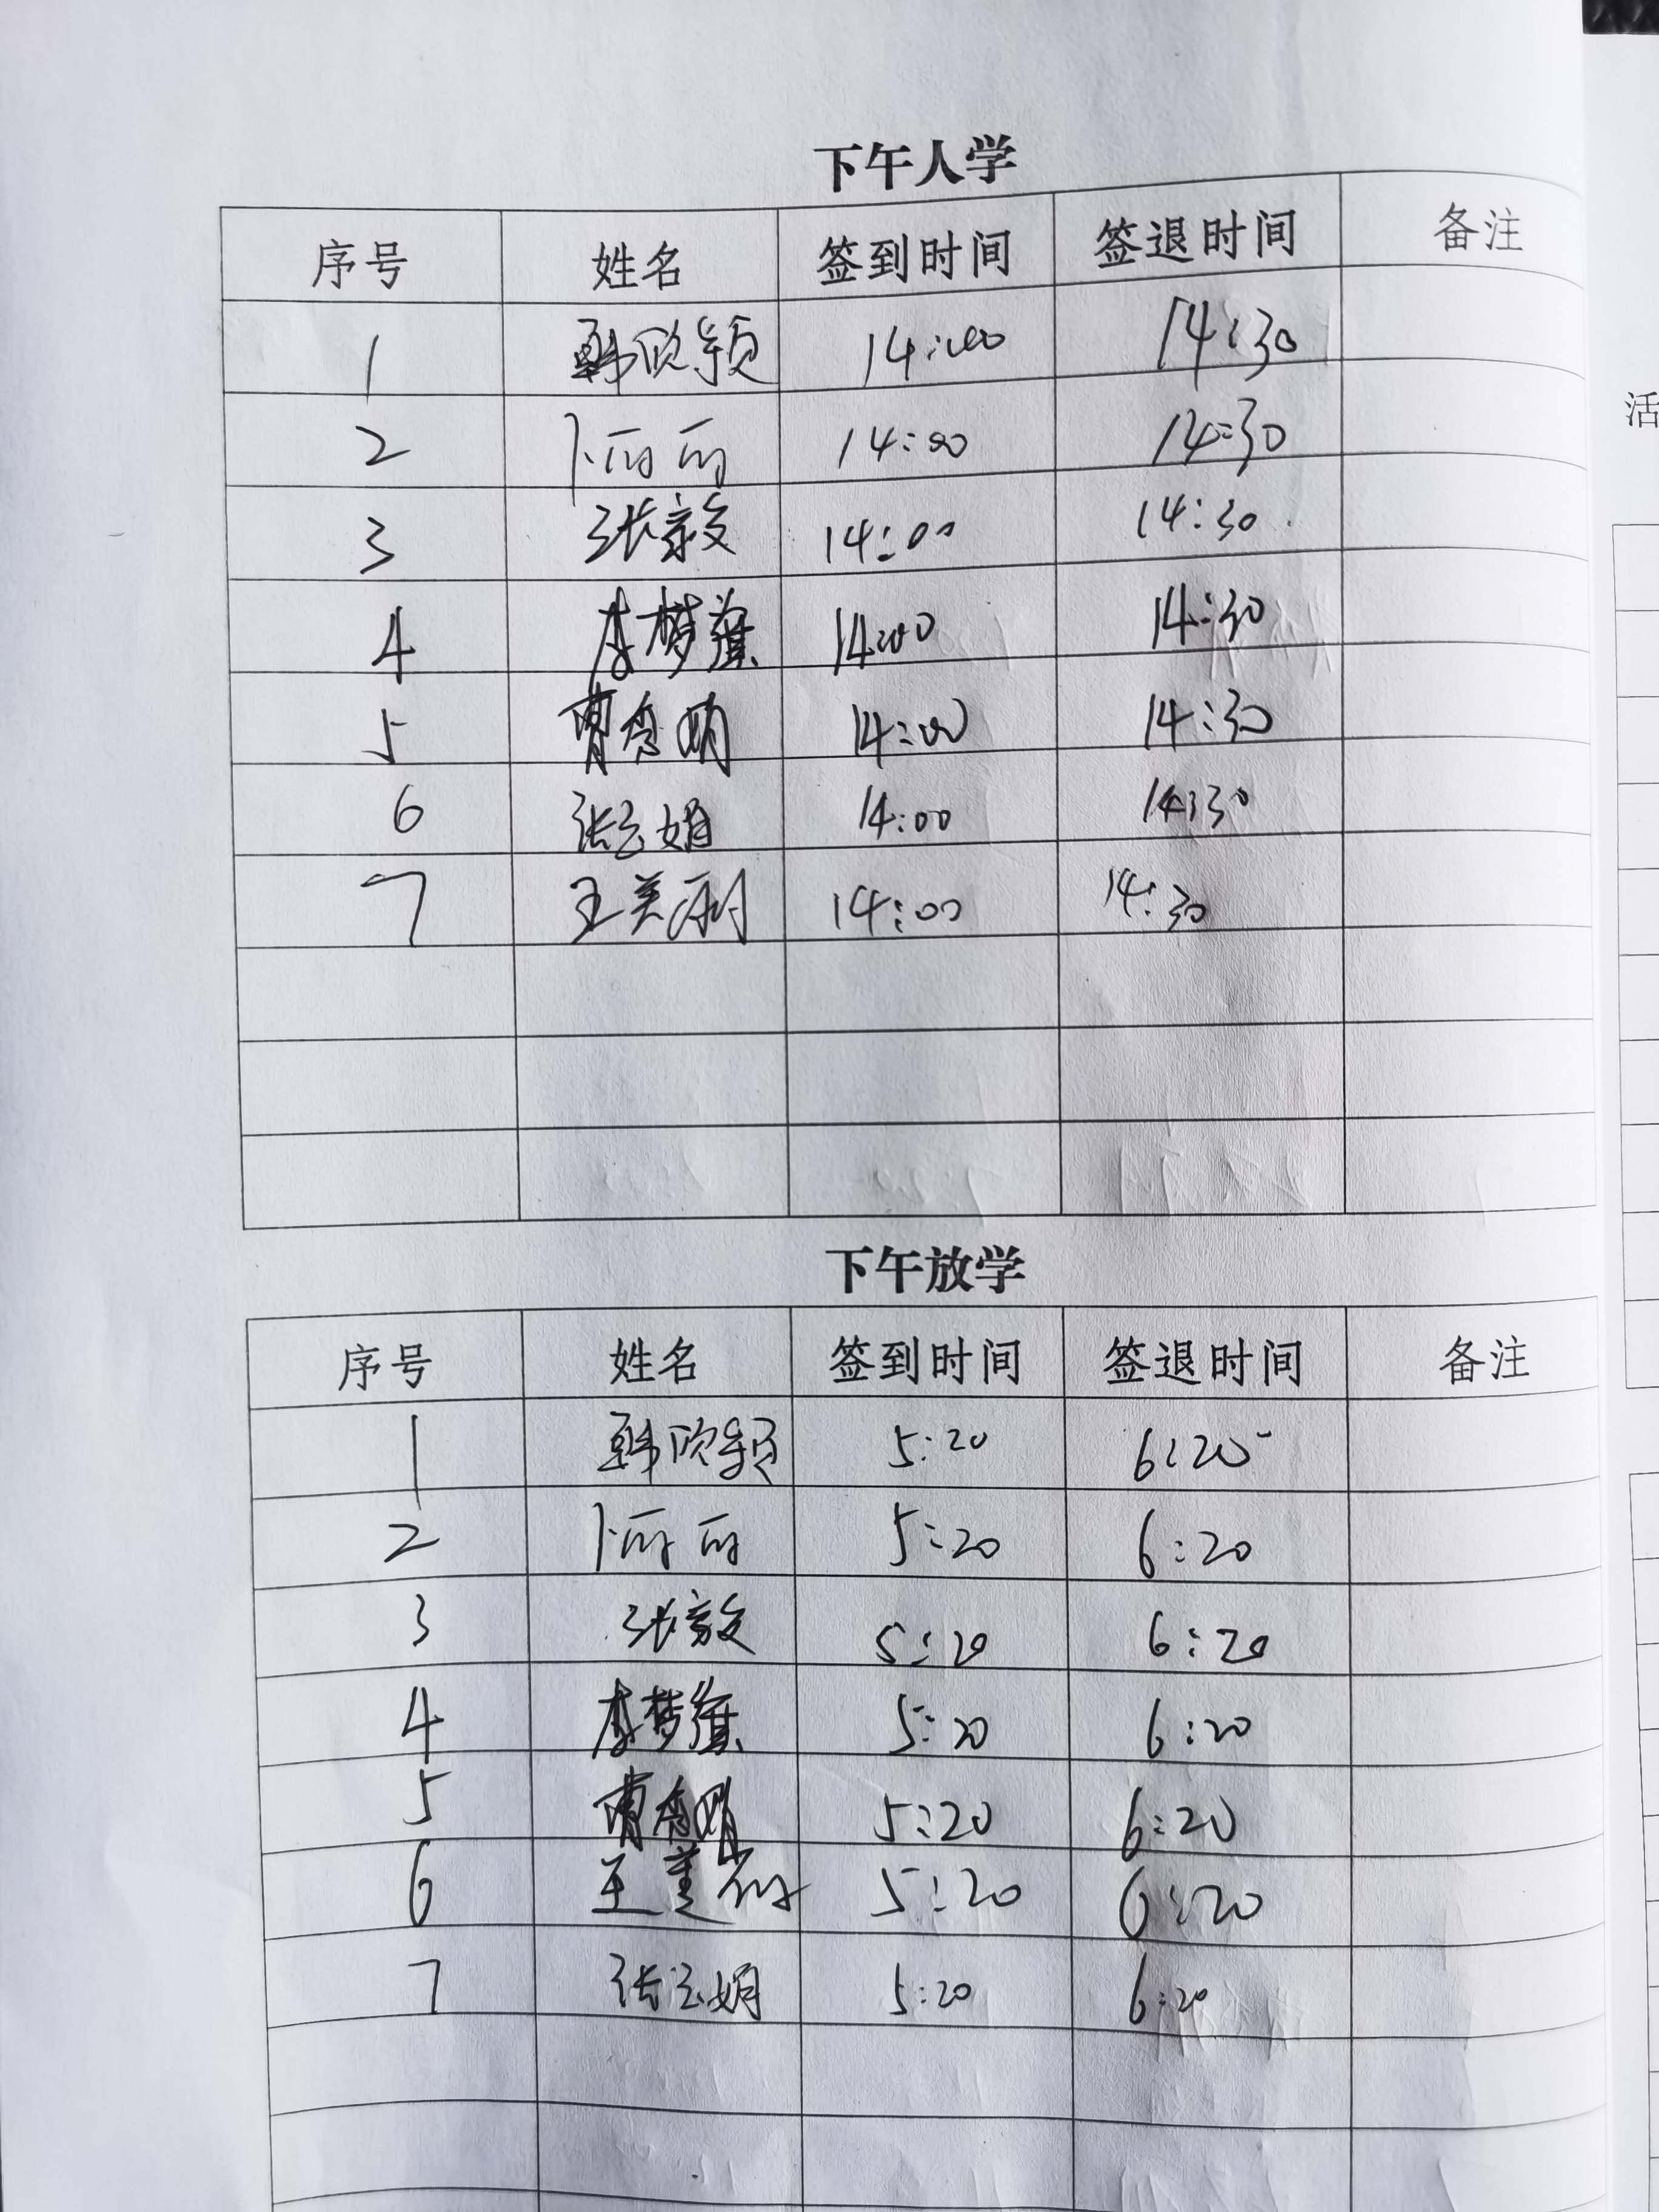 下午入学
序号 姓名 签到时间 签退时间 备注
1 韩欣颖 14:00 14:30
2 卜丽丽 14:00 14:30
3 张毅 14:00 14:30
4 李梦薇 14:00 14:30
5 曹 14:00 14:30
6 张云娟 14:00 14:30
7 王美丽 14:00 14:30
下午放学
序号 姓名 签到时间 签退时间 备注
1 韩欣颖 5:20 6:20
2 卜丽丽 5:20 6:20
3 张毅 5:20 6:20
4 李梦薇 5:20 6:20
5 曹 5:20 6:20
6 王美丽 5:20 6:20
7 张云娟 5:20 6:20
活